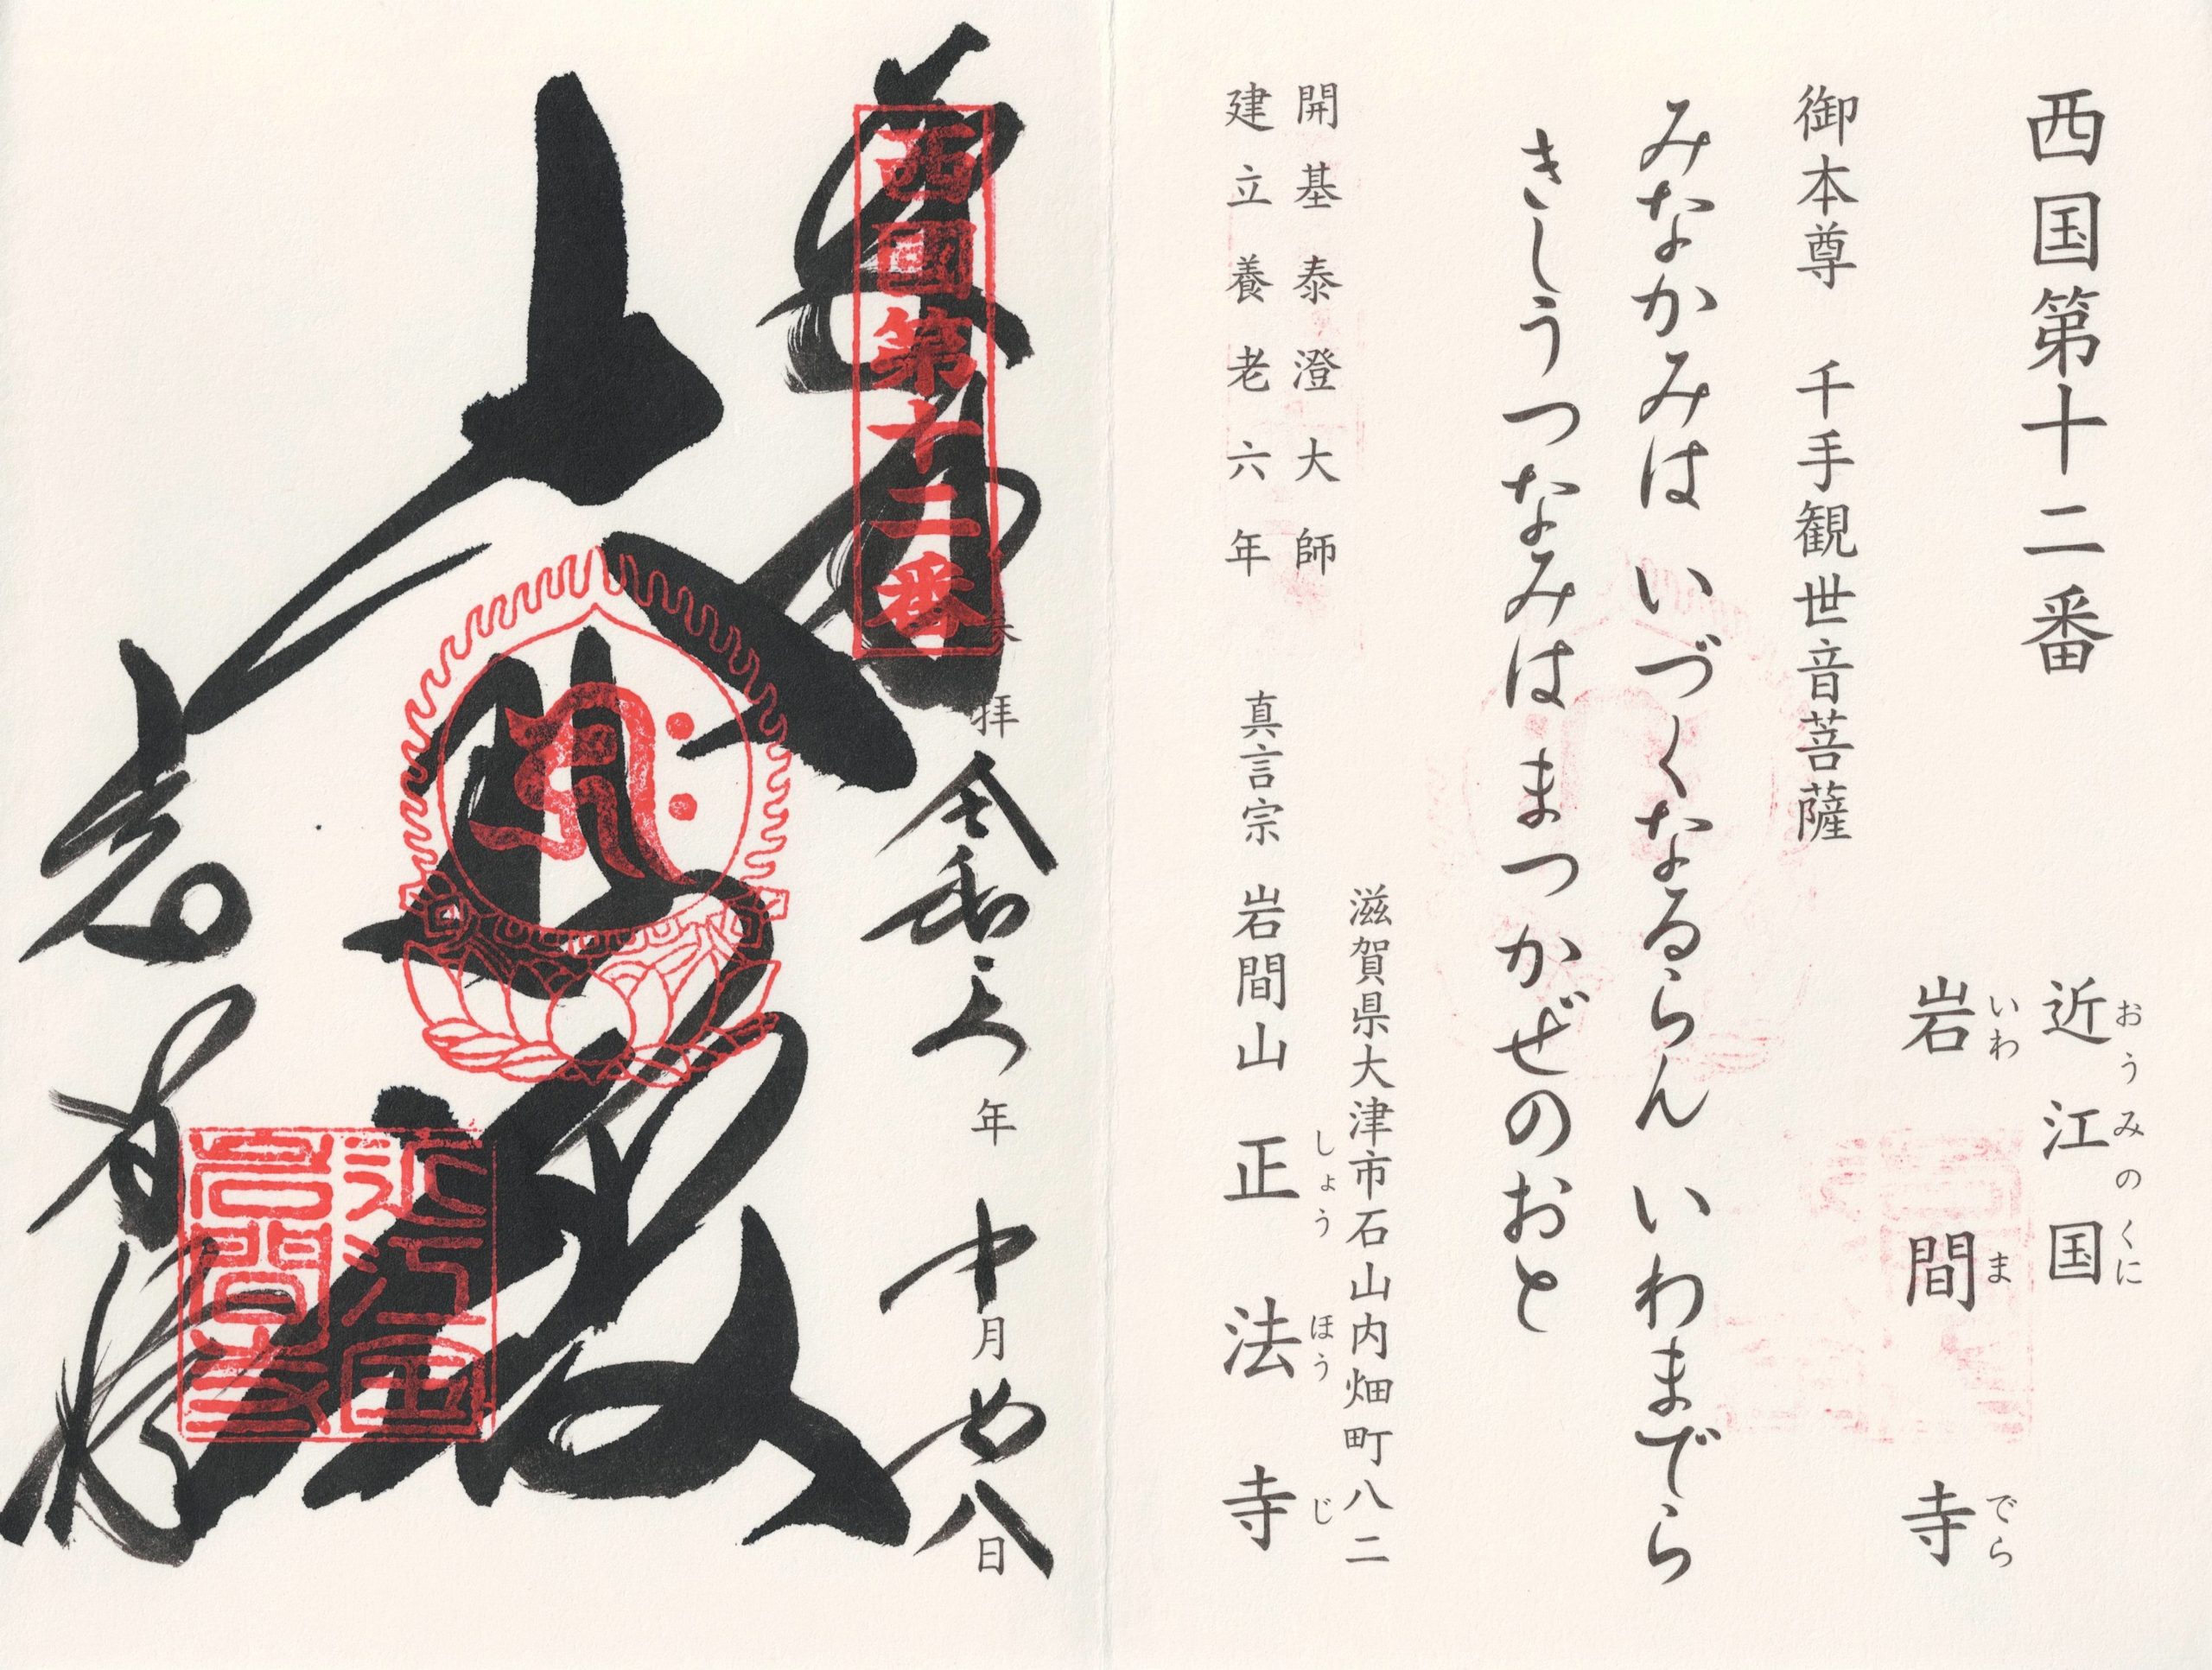 西国第十二番
近江国
おうみのくに
岩間寺
いわまでら
御本尊 千手観世音菩薩
みなかみは いづくなるらん いわまでら
きしうつなみは まつかぜのおと
開基泰澄大師
建立養老六年
滋賀県大津市石山内畑町八二
真言宗 岩間山 正法寺
しょうほうじ
西国第十二番
拝
令和 年 月 八日
大悲殿
近江国
岩間寺